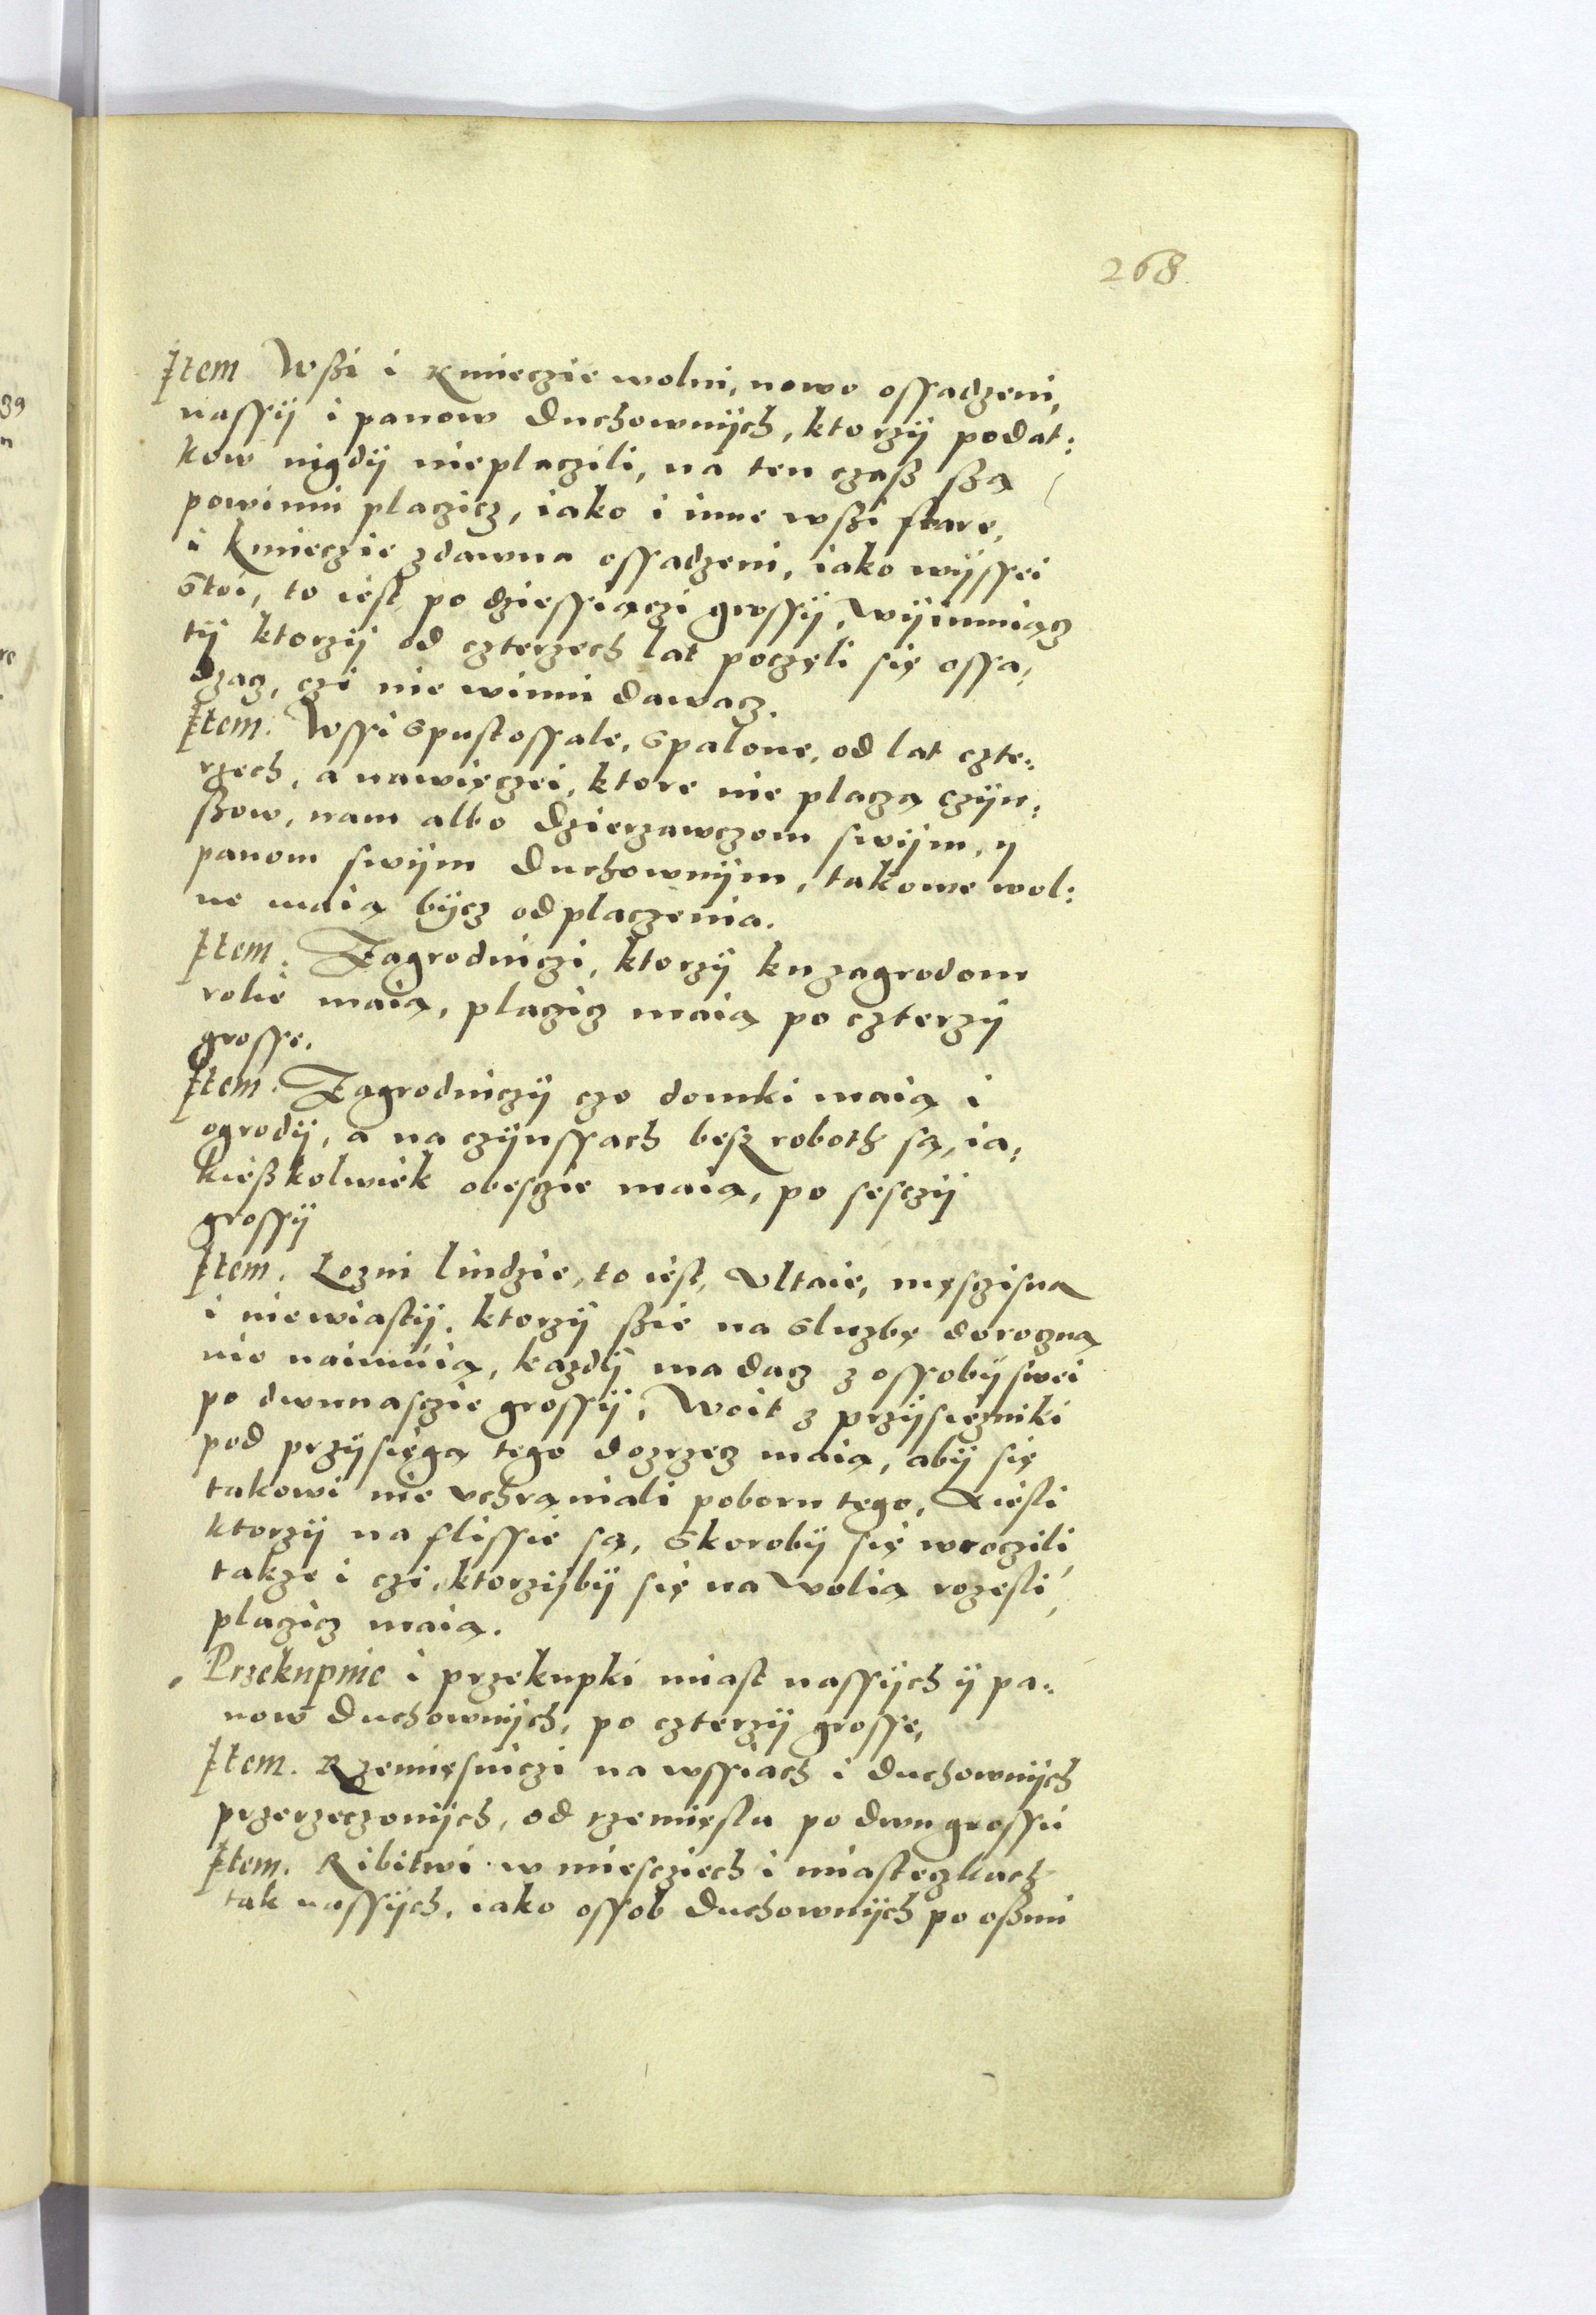 268.
Item Wßi i Kmieczie wolni, nowo ossadzeni,
nassÿ i panow duchownÿch, ktorzÿ podat:
kow nigdÿ nieplaczili, na ten czaß ßą
powinni placzicz, iako i inne wßi stare,
i kmieczie zdawna ossadzeni, iako wÿssei
stoi, to iest po dziessiączi grossÿ, wÿimuiącz
tÿ ktorzÿ od czterzech lat poczęli się ossa:
dzacz, czi nie winni dawacz.
Item. Wssi spustossale, spalone, od lat czte:
rzech, a nawięczei, ktore nie placzą czÿn:
ßow, nam albo dzierzawczom swÿm, y
panom swÿm duchownÿm, takowe wol:
ne maią bÿcz od placzenia.
Item. Zagrodniczi, ktorzÿ ku zagrodom
rolie maią, placzicz maią po czterzÿ
grosse.
Item. Zagrodniczÿ czo domki maią i
ogrodÿ, a na czÿnssach besz roboth są, ia:
kießkolwiek obesczie maią, po sesczÿ
grossÿ
Item. Lozni liudzie, to iest, Vltaie, męsczisna
i niewiastÿ, ktorzÿ ßie na sluzbę doroczną
nie naimuią, kazdÿ ma dacz z ossobÿ swei
po dwunasczie grossÿ, Woit z przÿsięzniki
pod przÿsięgą tego dozrzecz maią, abÿ się
takowi nie vchraniali poboru tego, A iesli
ktorzÿ na flissie są, skorobÿ się wroczili
takze i czi, ktorzÿbÿ się na Wolią rozesli,
placzicz maią.
Przekupnie i przekupki miast nassÿch ÿ pa:
now duchownÿch, po czterzÿ grosse,
Item. Rzemięsniczi na wssiach i duchownÿch
przerzeczonÿch, od rzemięsla po dwu grossu
Item. Ribitwi w miesciech i miasteczkach
tak nassÿch, iako ossob duchownÿch po oßmi